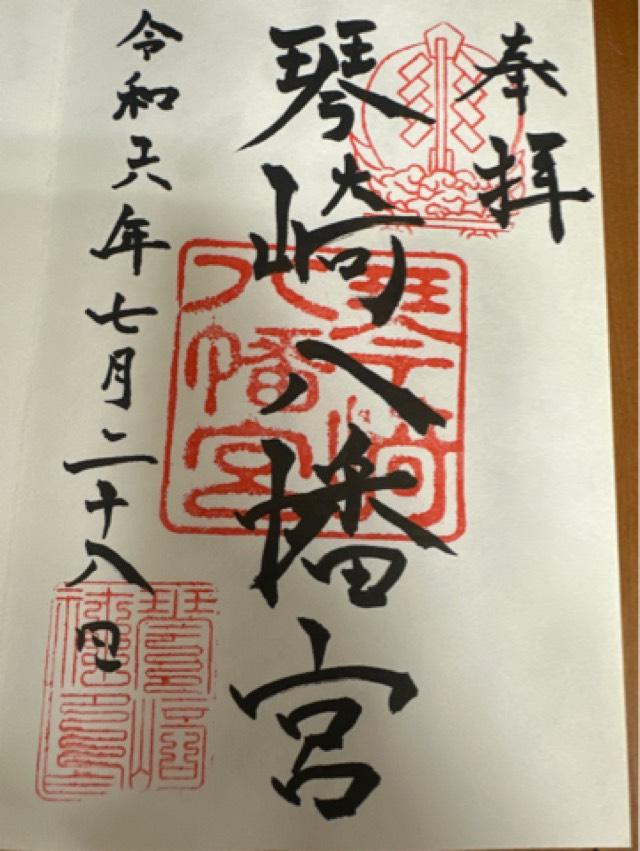 奉拝
琴崎八幡宮
令和六年七月二十八日
琴崎八幡宮